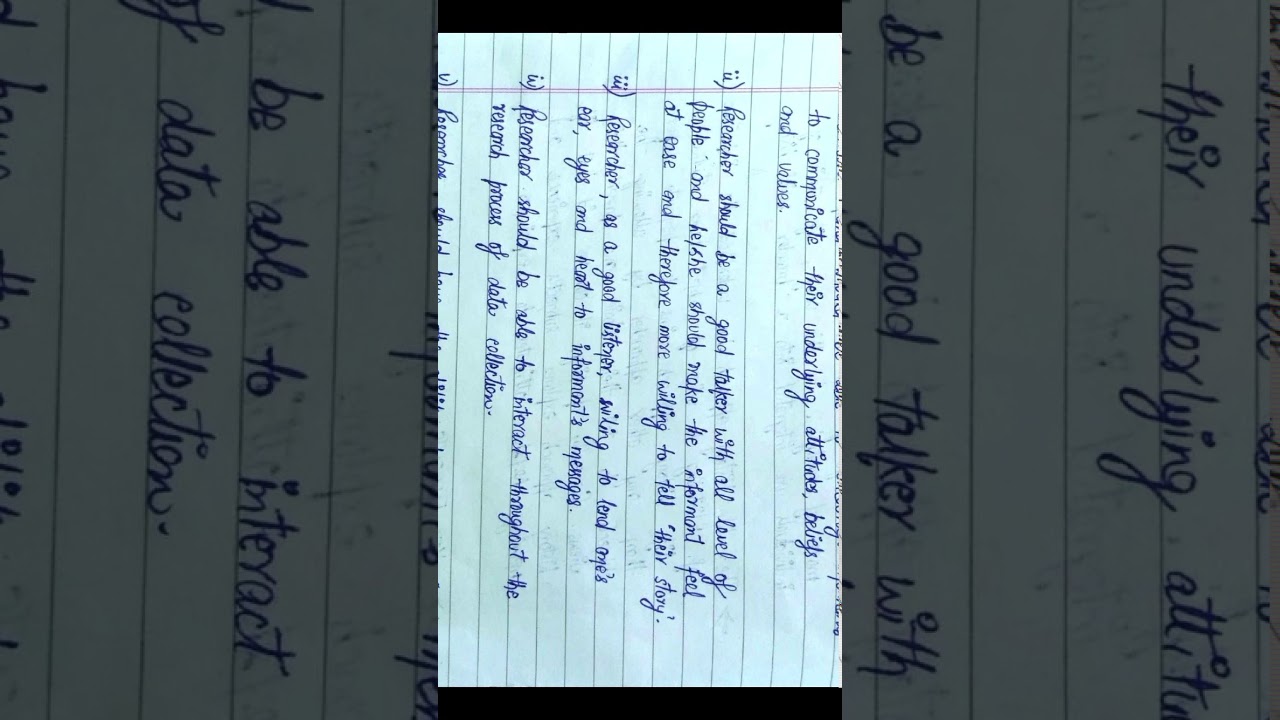 to communicate their underlying attitudes, beliefs
and values.
ii) Researcher should be a good talker with all level of
people and he/she should make the informant feel
at ease and therefore more willing to tell their story.
iii) Researcher, as a good listener, willing to lend one's
ear, eyes and heart to informant's messages.
iv) Researcher should be able to interact throughout the
research process of data collection.
v) Researcher should have the ability